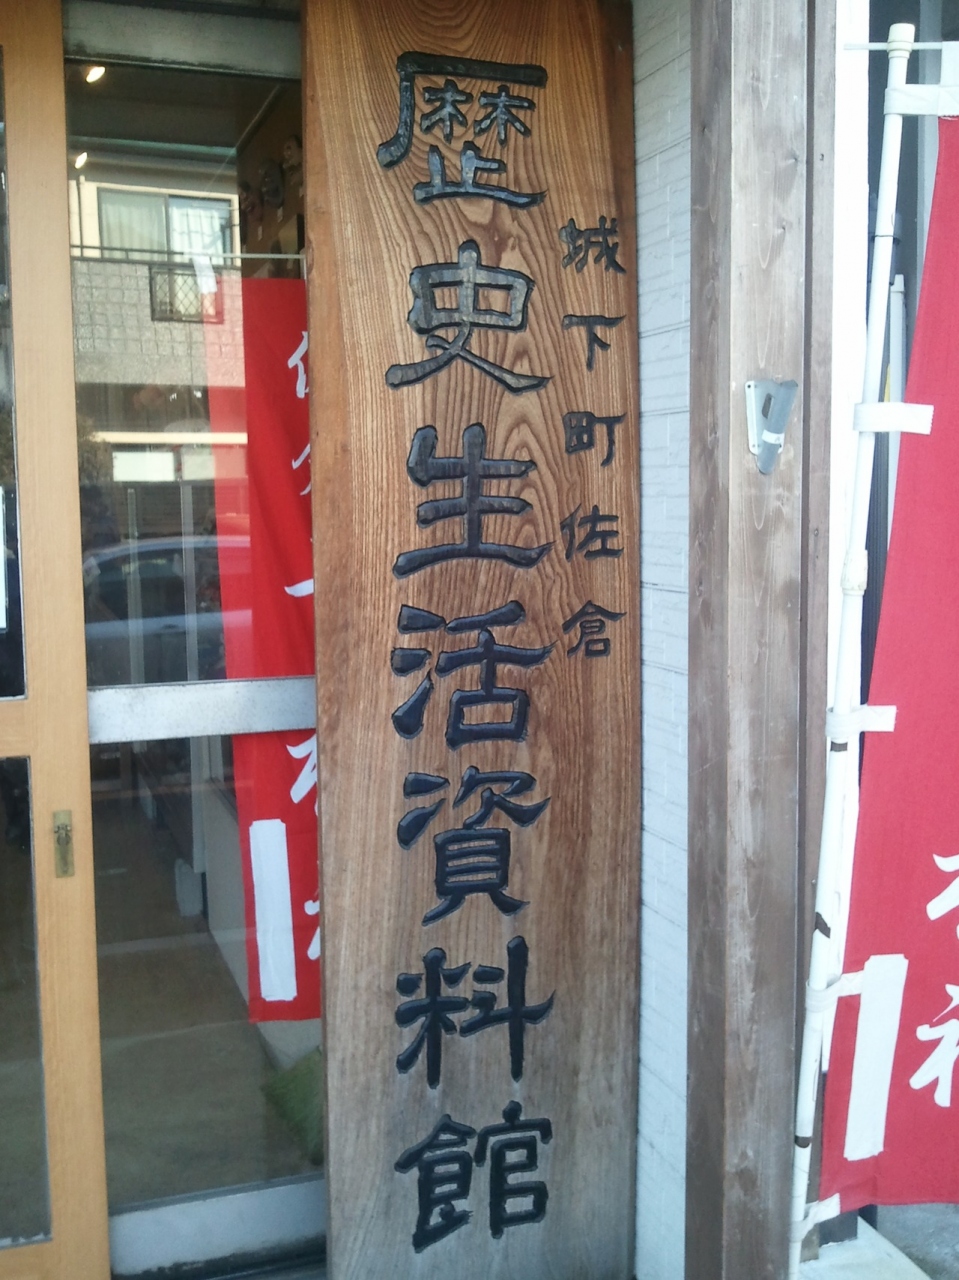 城下町佐倉
歴史生活資料館